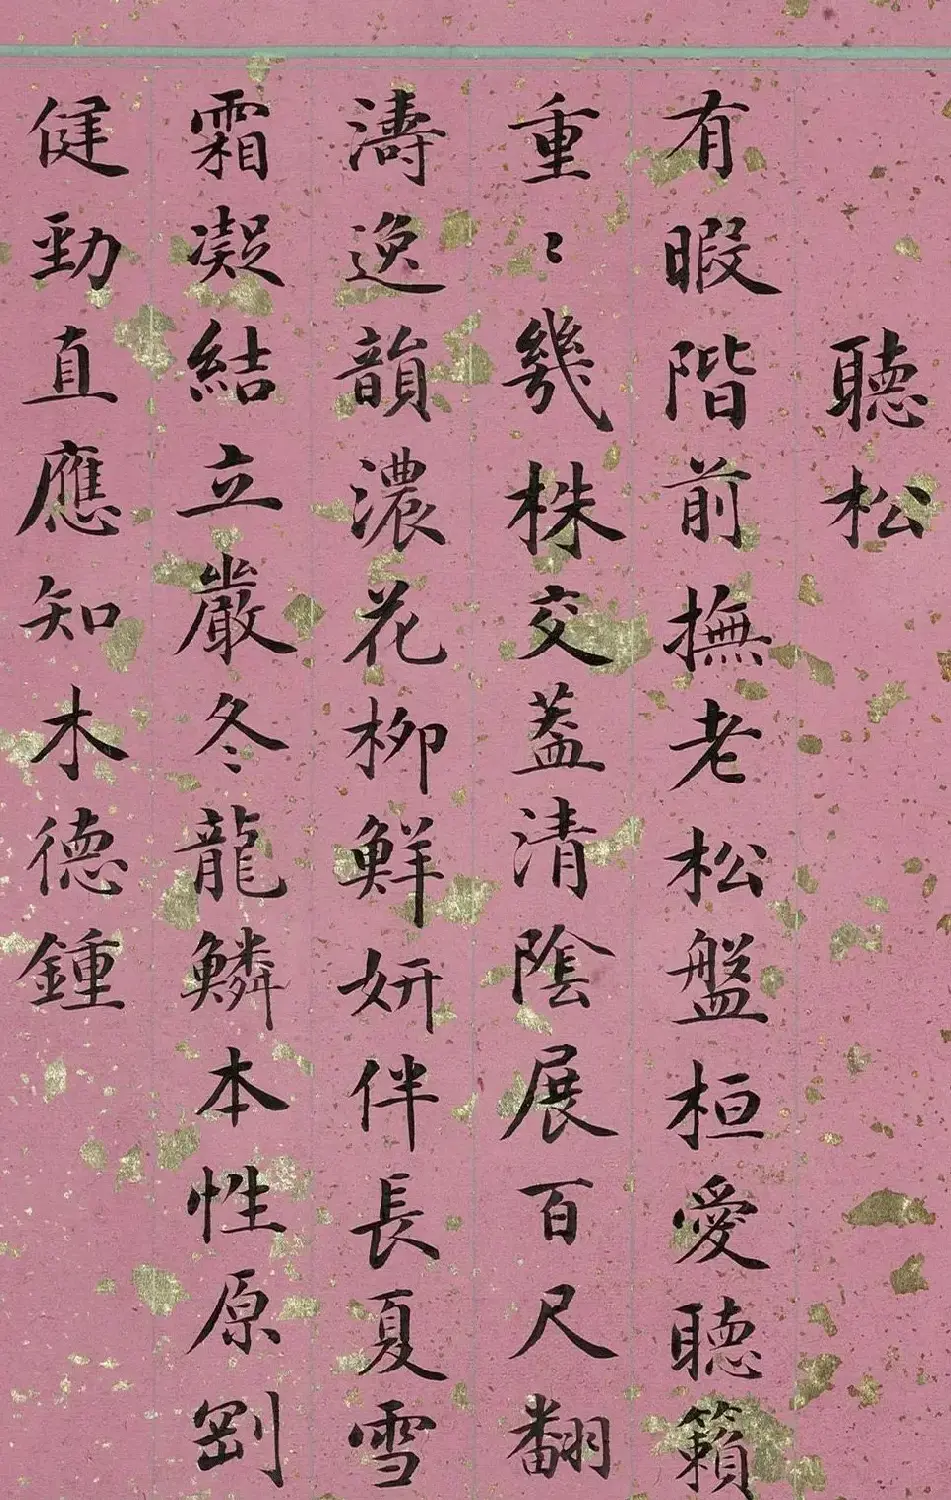 聽松
有暇階前撫老松盤桓愛聽籟
重〻幾株交蓋清陰展百尺翻
濤逸韻濃花柳鮮妍伴長夏雪
霜凝結立嚴冬龍鱗本性原剛
健勁直應知木德鍾